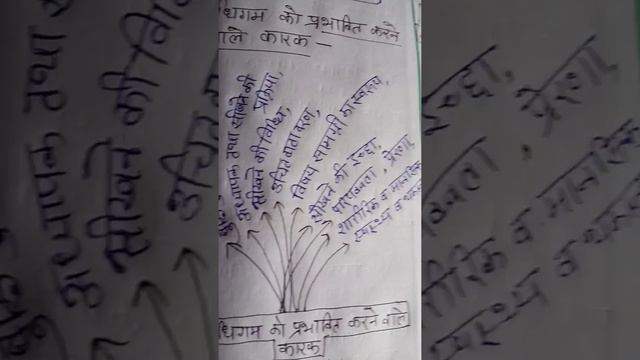 धिगम को प्रभावित करने
वाले कारक –
अध्यापक तथा सीखने की
प्रक्रिया,
सीखने की विधि,
उचित वातावरण,
विषय सामग्री का स्वरूप,
सीखने की इच्छा,
परिपक्वता, प्रेरणा,
शारीरिक व मानसिक
स्वास्थ्य व थकान
धिगम को प्रभावित करने वाले
कारक